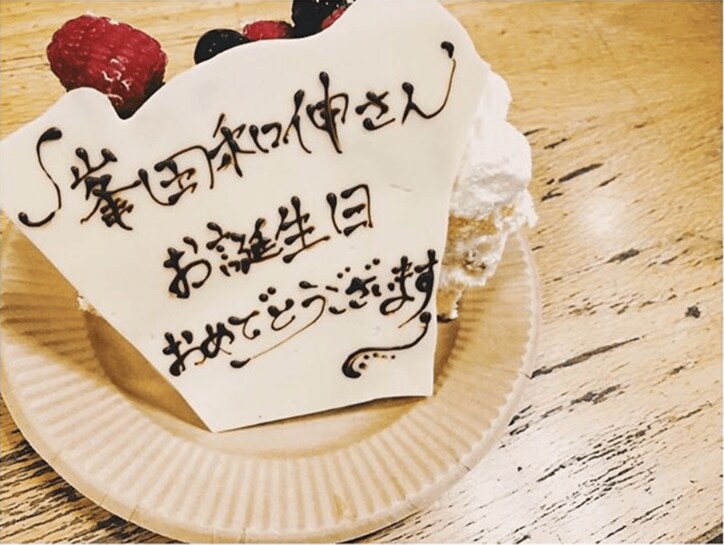 峯田和伸さん
お誕生日
おめでとうございます